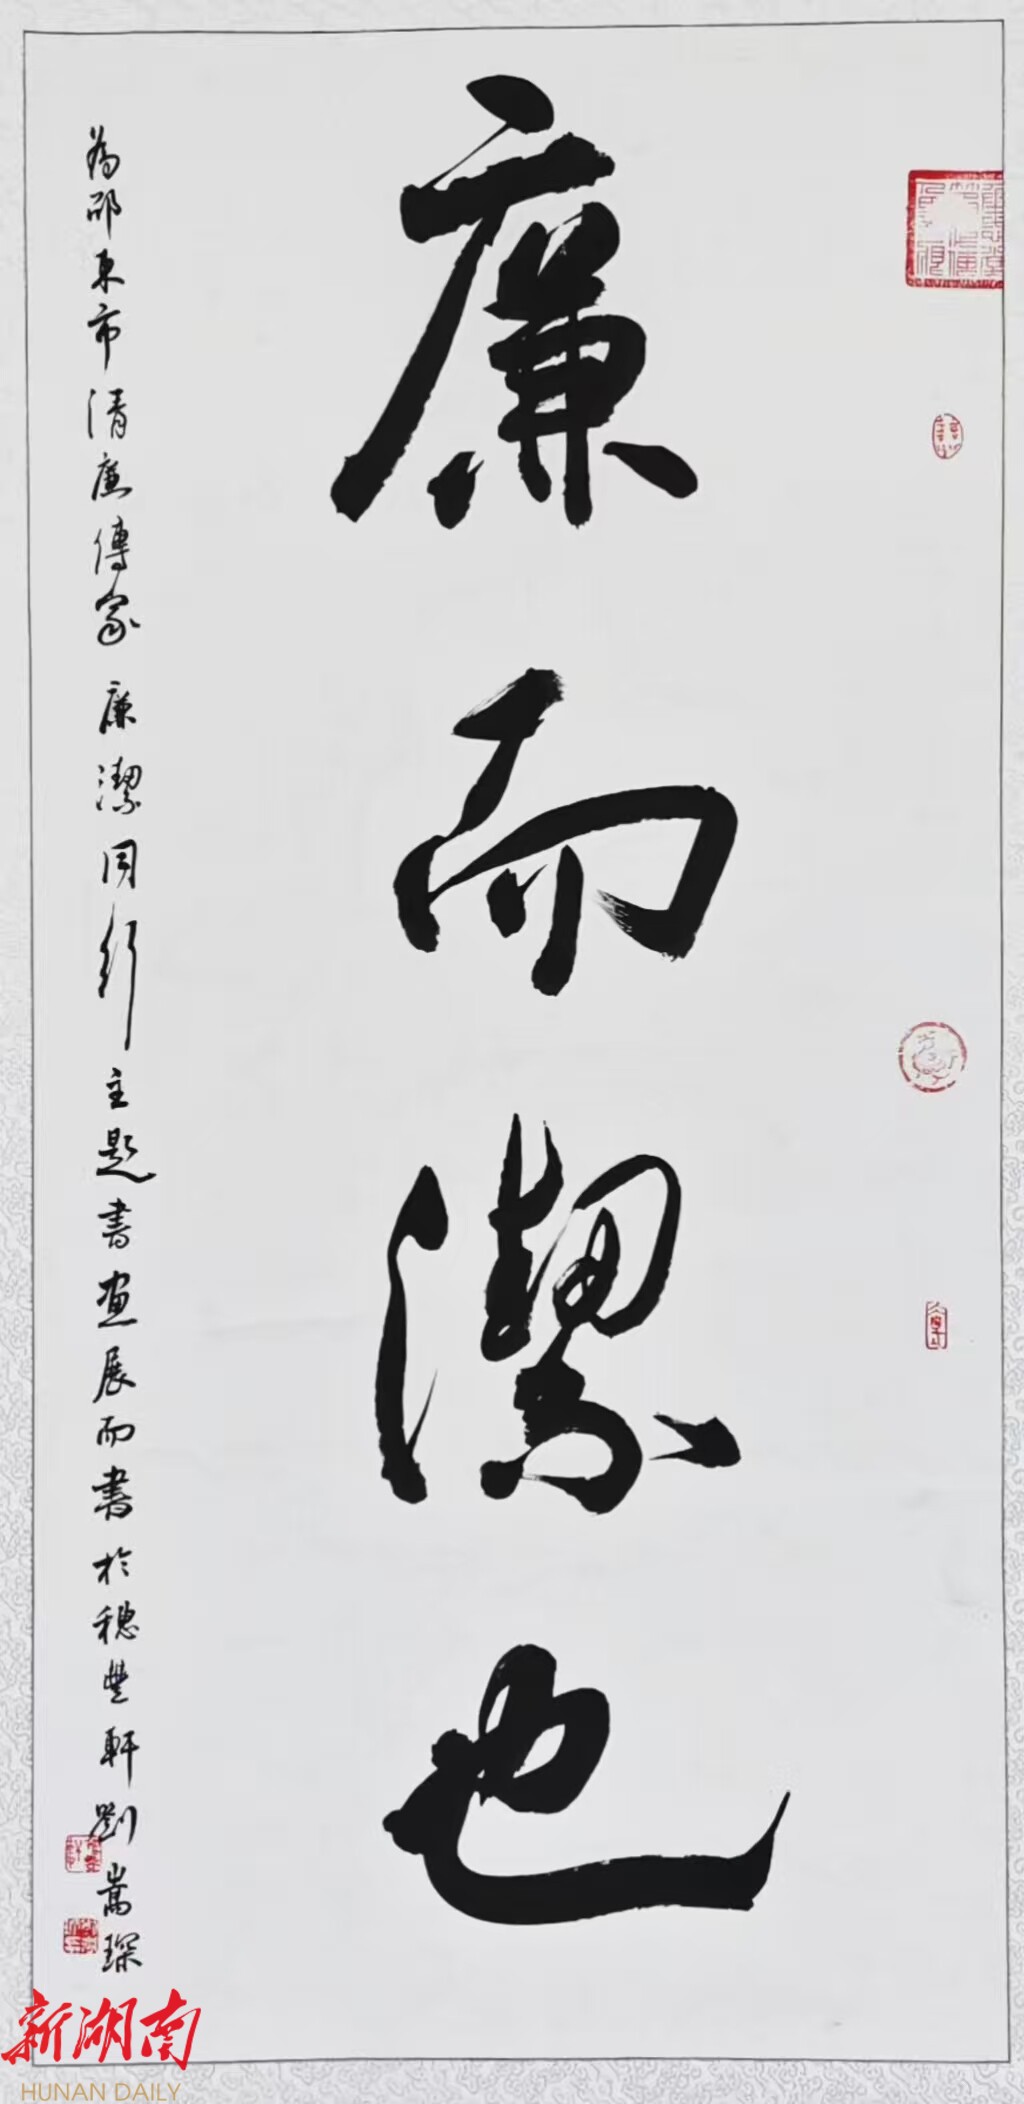 廉而潔也
為邵東市清廉傳家廉潔同行主題書畫展而書於穗豐軒劉嵩琛
新湖南
HUNAN DAILY